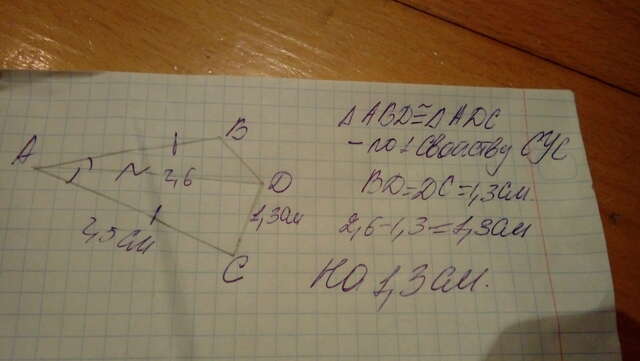 A
B
2,6
D
1,3см
2,5см
C
ΔABD≅ΔADC
-по 1 свойству СУС
BD=DC=1,3см.
2,6-1,3=1,3см
на 1,3см.